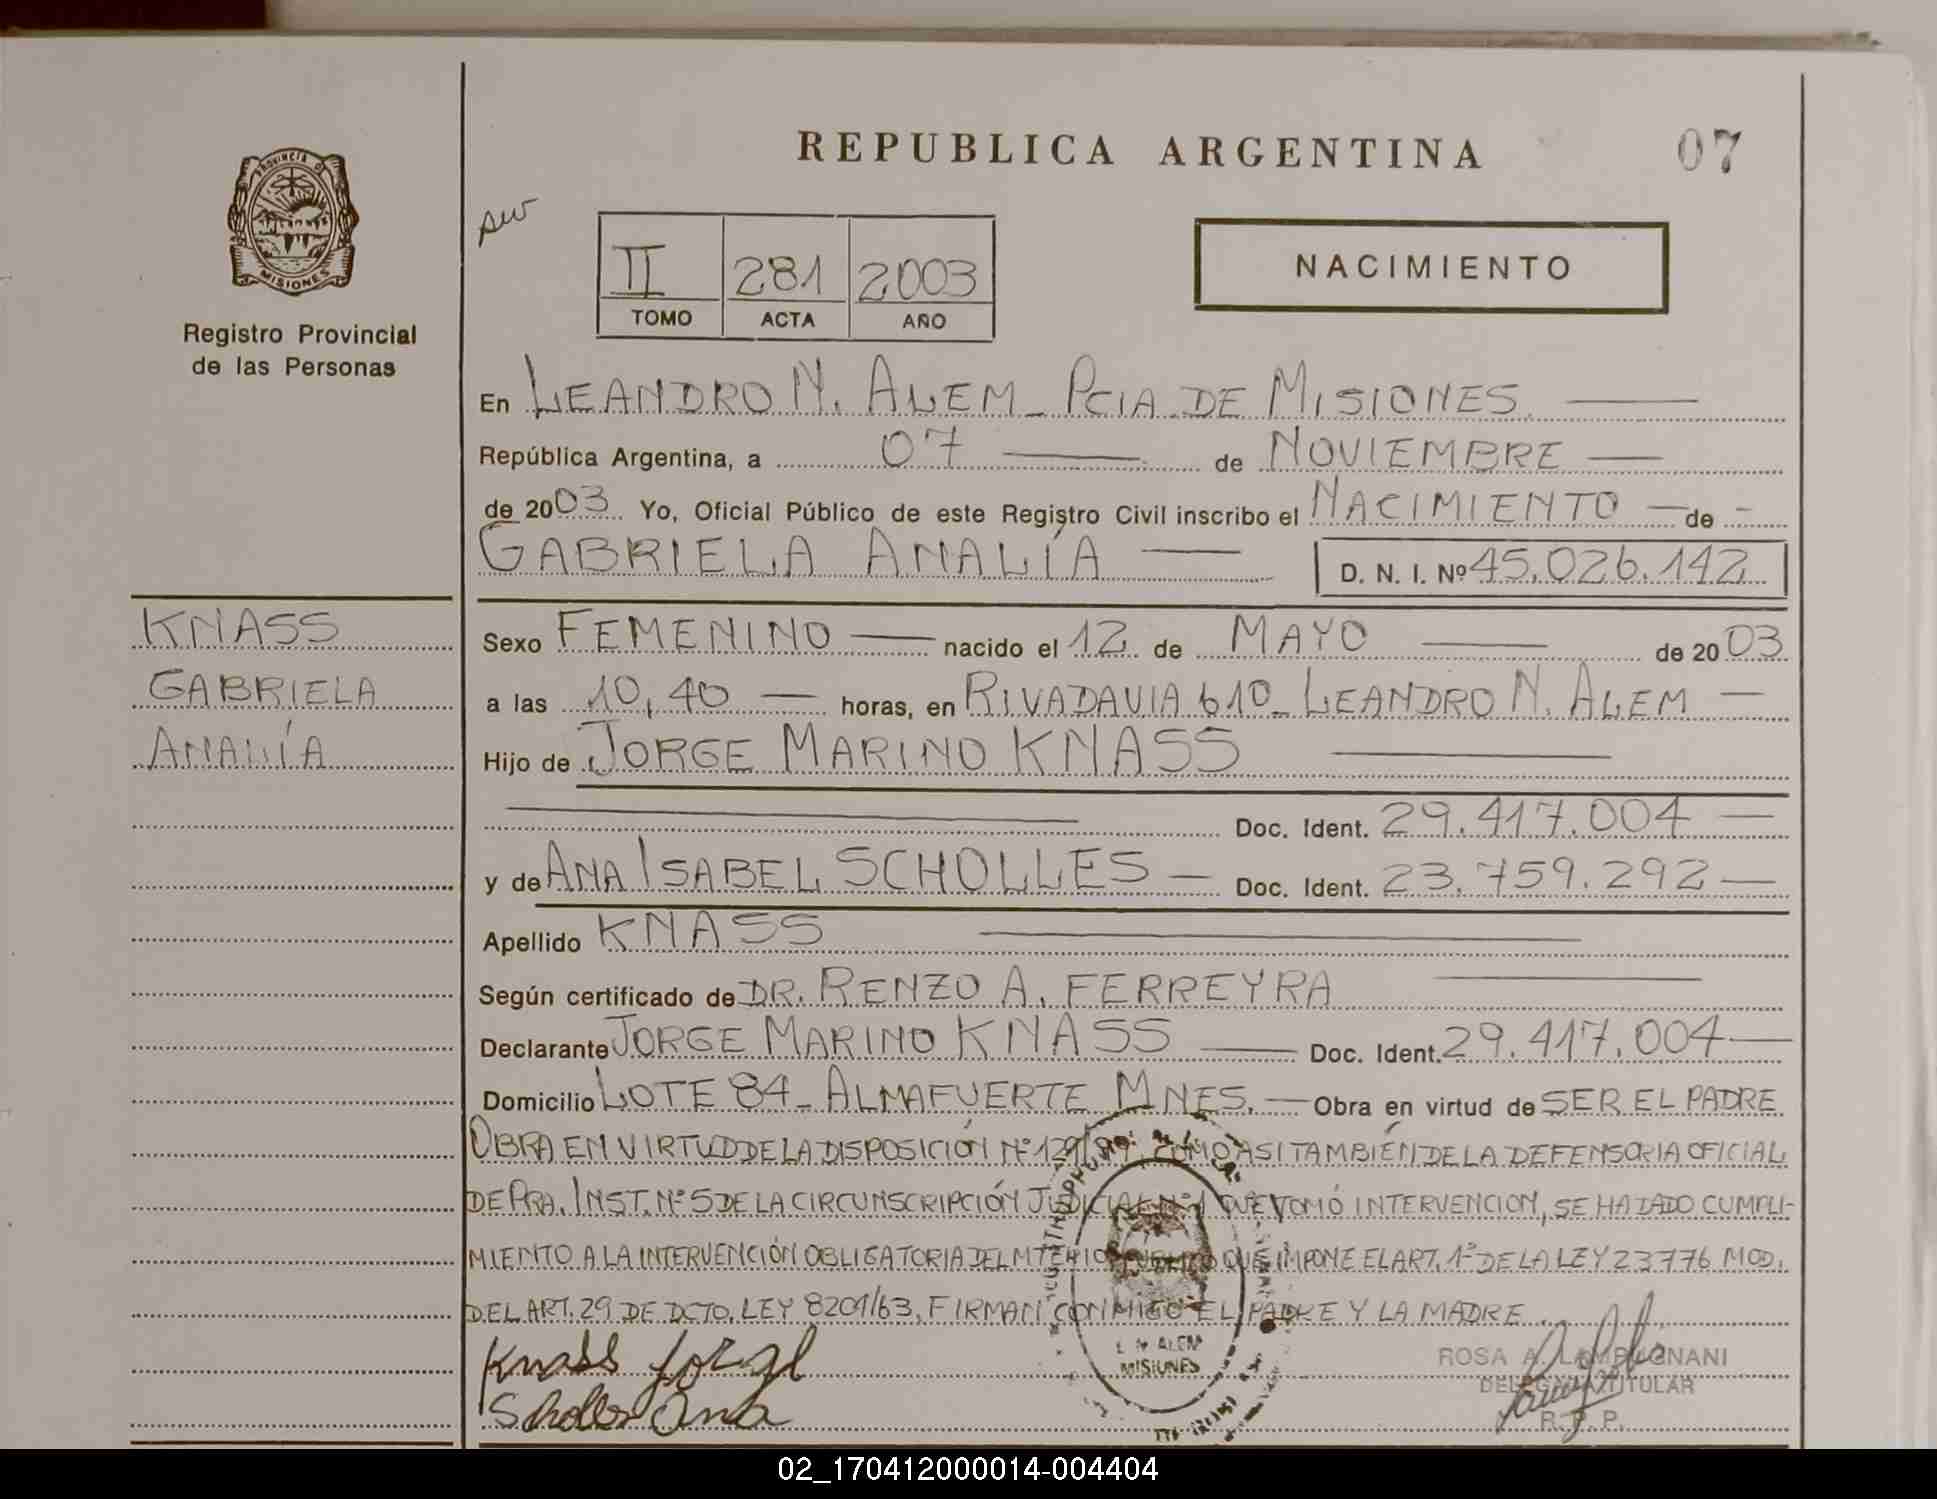 REPUBLICA ARGENTINA
07
PROVINCIA D
MISIONES
Registro Provincial
de las Personas
II 281 2003
TOMO ACTA AÑO
NACIMIENTO
En LEANDRO N. ALEM - PCIA DE MISIONES.
República Argentina, a 07 de NOVIEMBRE
de 2003 Yo, Oficial Público de este Registro Civil inscribo el NACIMIENTO de
GABRIELA ANALÍA D. N. I. Nº 45.026.142
KNASS
GABRIELA
ANALÍA
Sexo FEMENINO nacido el 12 de MAYO de 2003
a las 10,40 horas, en RIVADAVIA 610 - LEANDRO N. ALEM
Hijo de JORGE MARINO KNASS
Doc. Ident. 29.417.004
y de ANA ISABEL SCHOLLES Doc. Ident. 23.759.292
Apellido KNASS
Según certificado de DR. RENZO A. FERREYRA
Declarante JORGE MARINO KNASS Doc. Ident. 29.417.004
Domicilio LOTE 84 - ALMAFUERTE MNES. Obra en virtud de SER EL PADRE
OBRA EN VIRTUD DE LA DISPOSICIÓN Nº 129/99 COMO ASI TAMBIÉN DE LA DEFENSORIA OFICIAL
DE PRA. INST. Nº 5 DE LA CIRCUNSCRIPCIÓN JUDICIAL Nº 1 QUE TOMÓ INTERVENCION, SE HA DADO CUMPLI-
MIENTO A LA INTERVENCIÓN OBLIGATORIA DEL QUE IMPONE EL ART. 1º DE LA LEY 23776 MOD.
DEL ART. 29 DE DCTO. LEY 8201/63, FIRMAN CONMIGO EL PADRE Y LA MADRE.
L N ALEM
MISIONES
Knass Jorge
Scholles Ana
ROSA A. LAMPUGNANI
DELEGADA TITULAR
R. P. P.
02_170412000014-004404